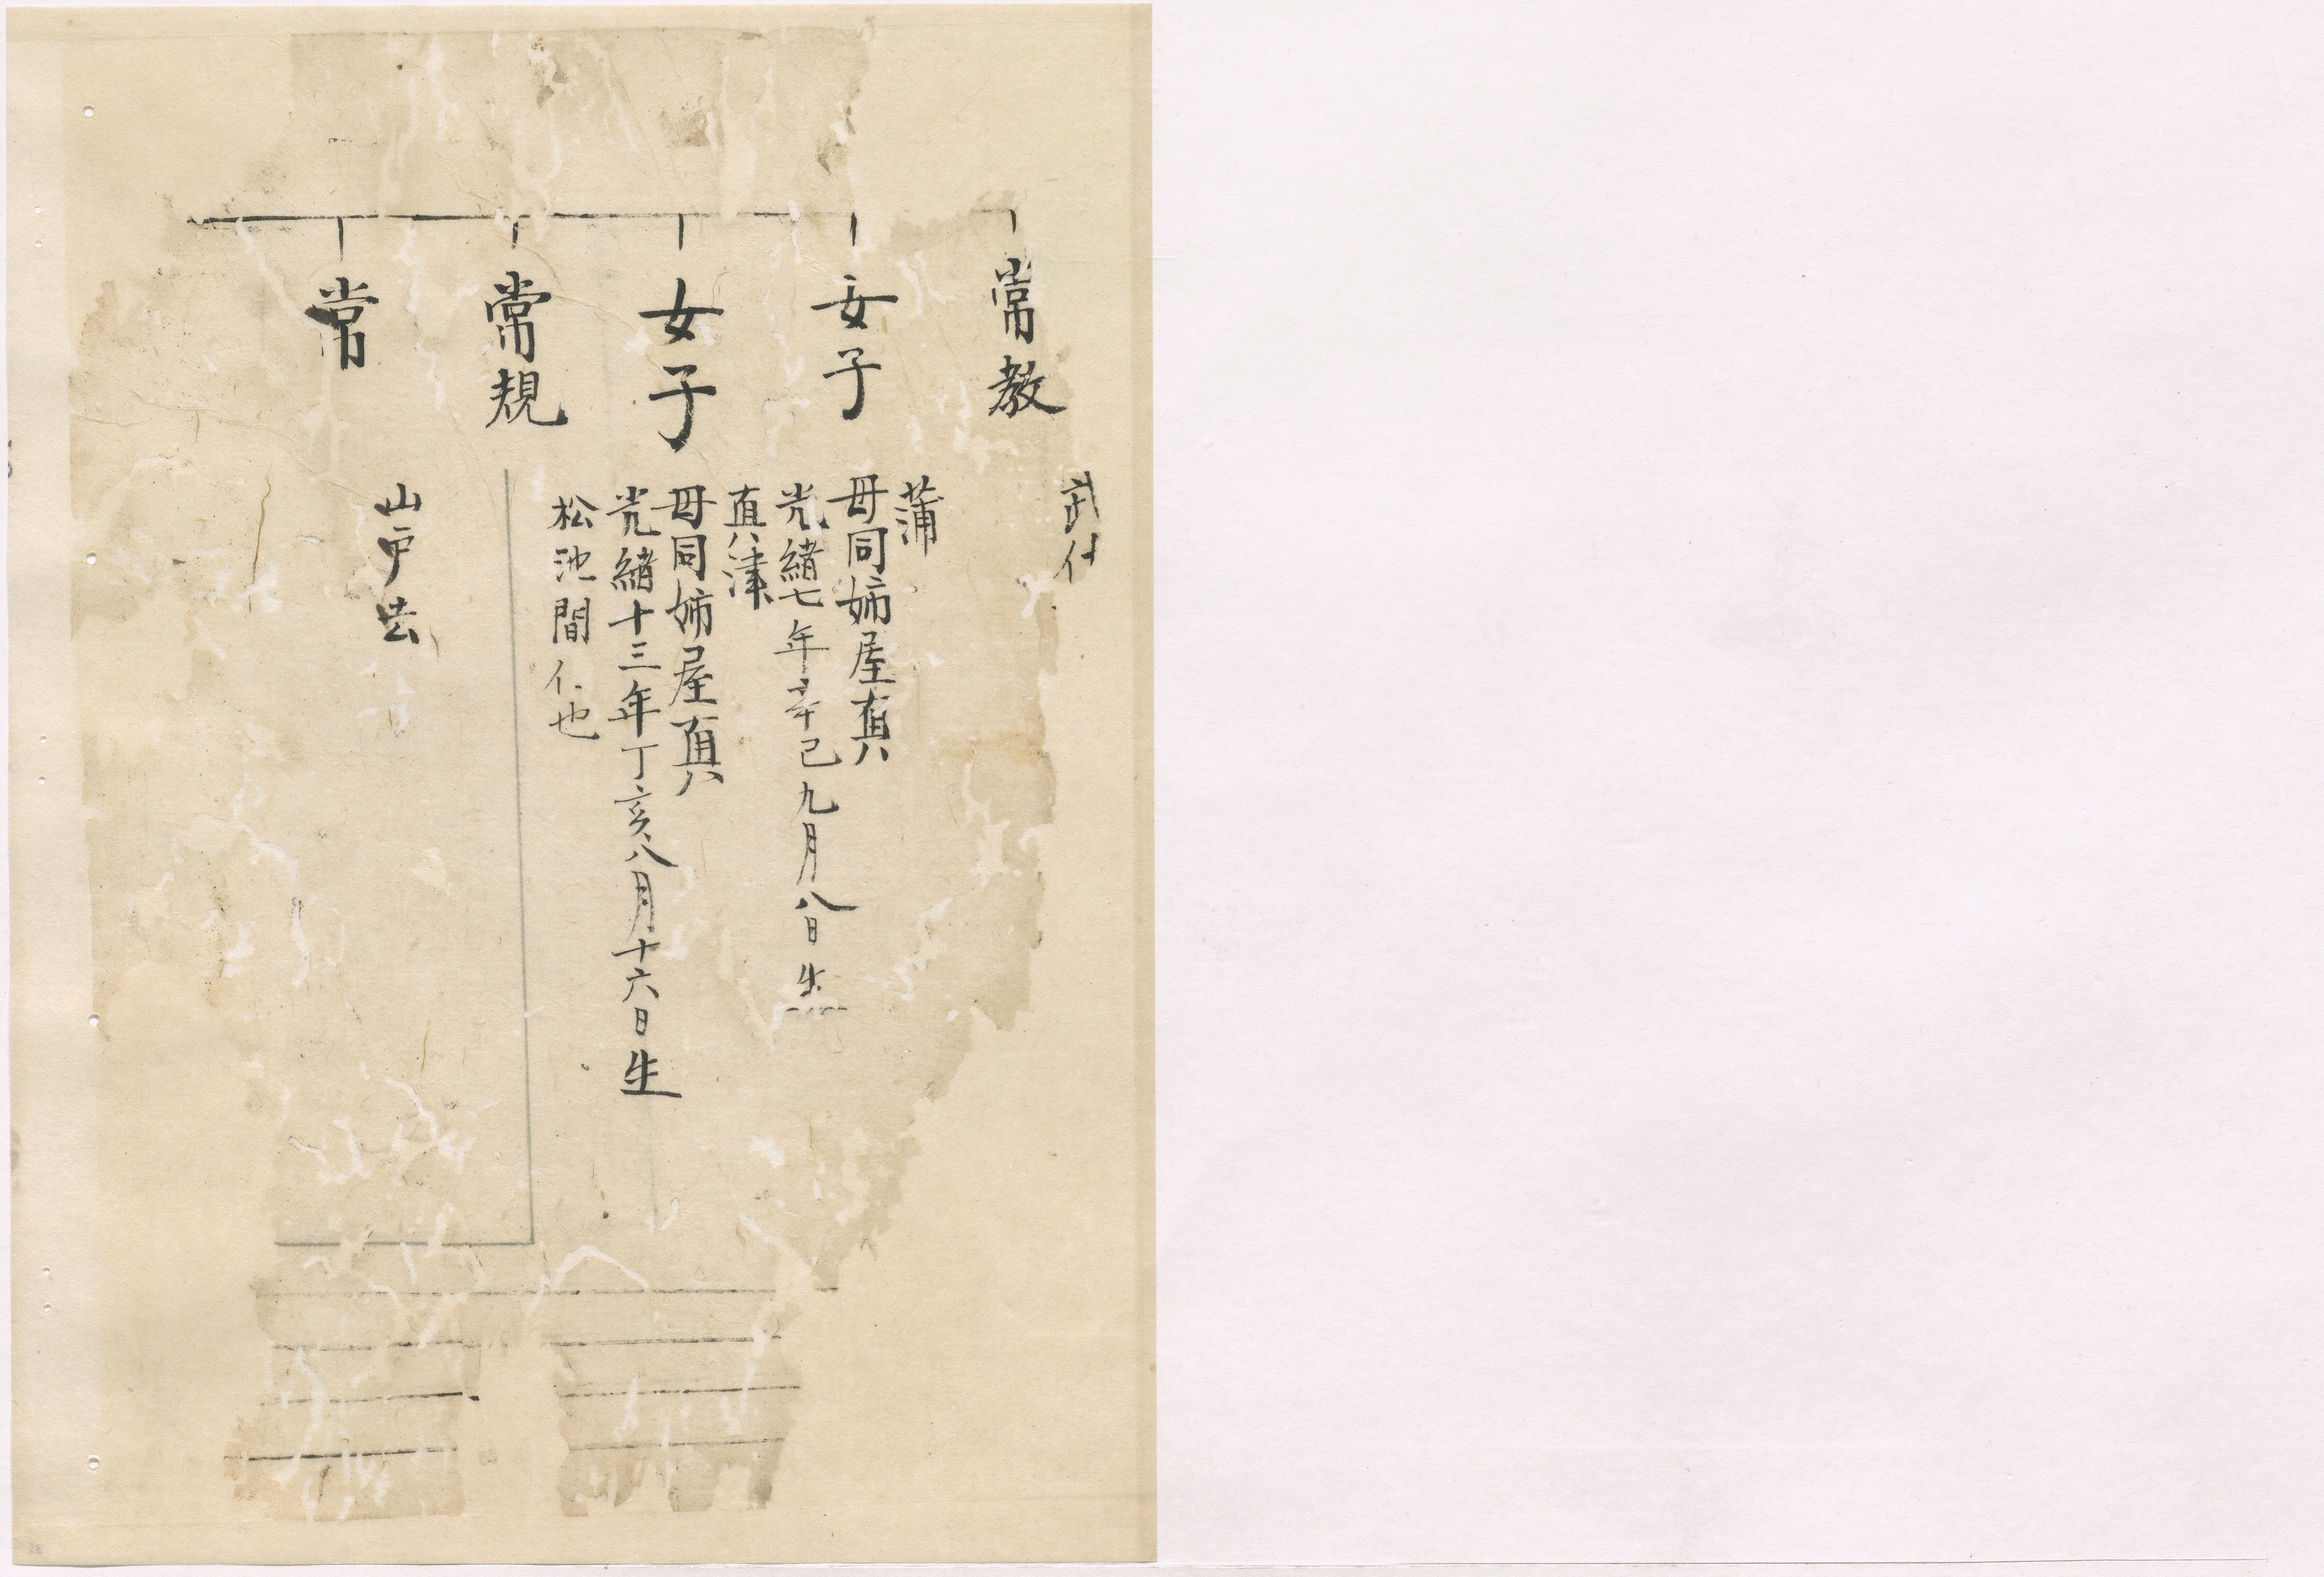 常教
武仕
女子
蒲
母同姉屋真
光緒七年辛巳九月八日生
女子
真津
母同姉屋真
光緒十三年丁亥八月十六日生
常規
松池間仁也
常
山戸